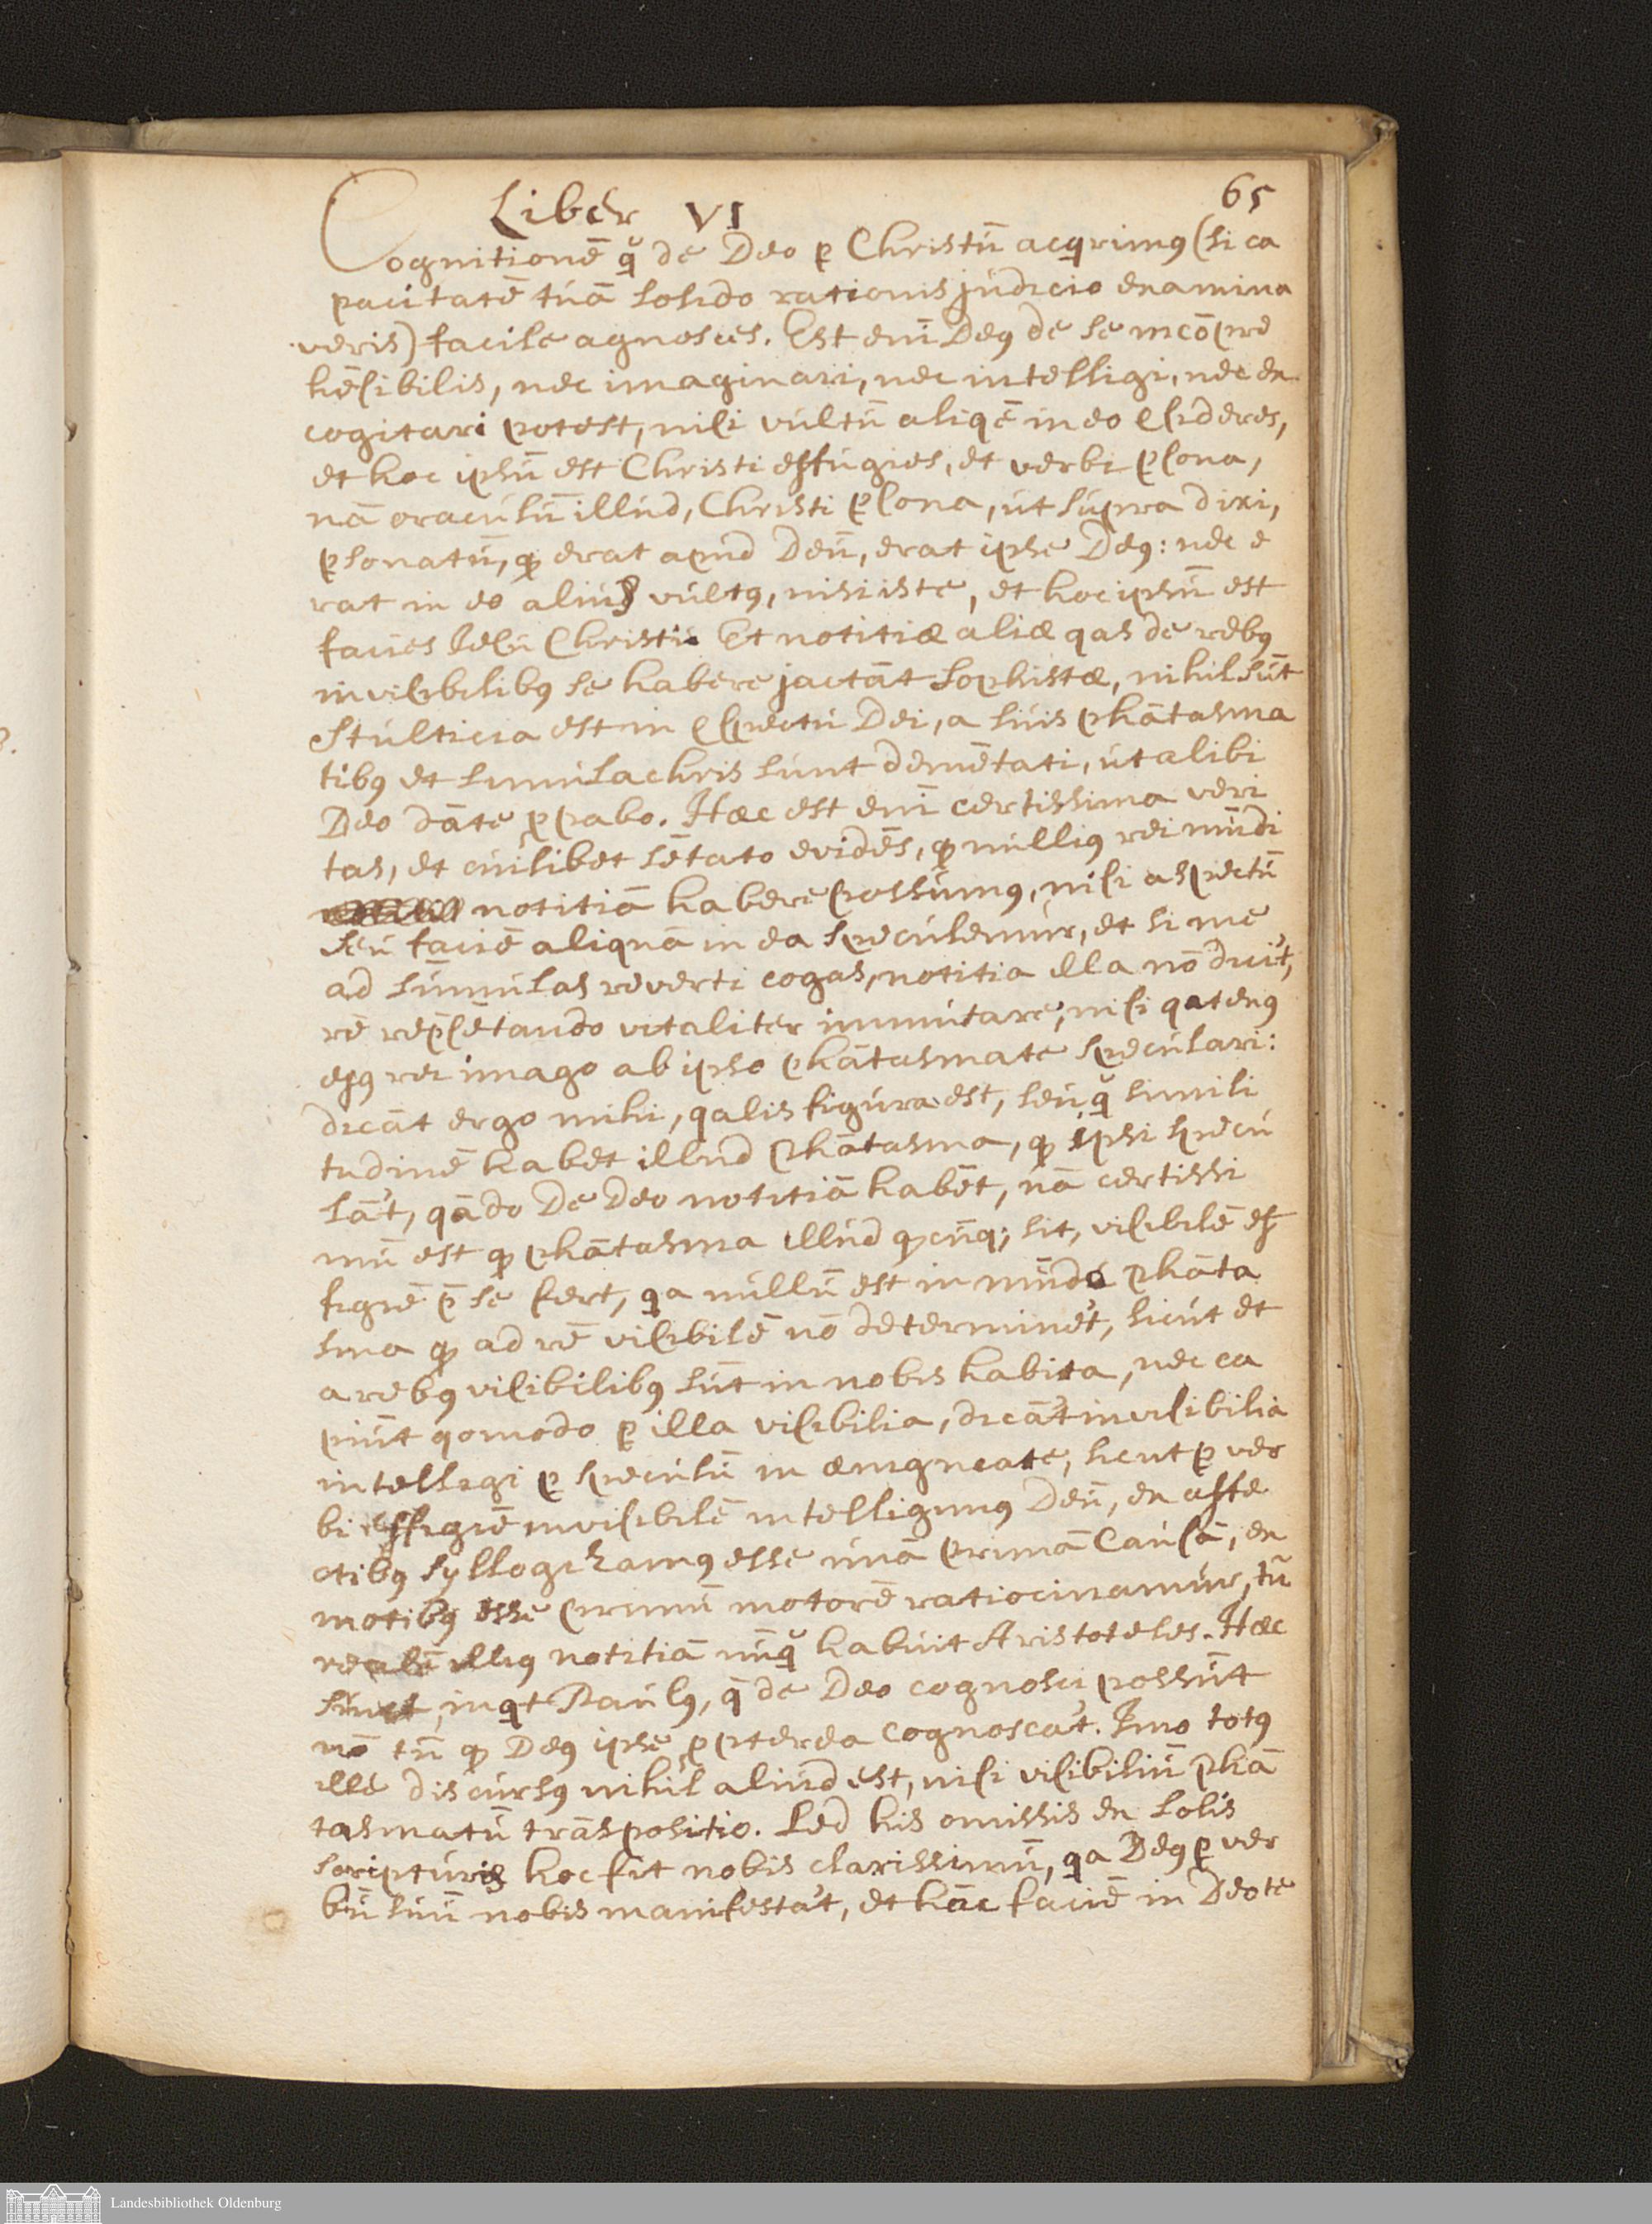 65
Liber VI
Cognitionē q̃ de Deo ꝑ Christū acqrimꝰ (si ca
pacitatē tuā solido rationis judicio examina
veris) facile agnosces. Est enī Deꝰ de se incōpre
hēsibilis, nec imaginari, nec intelligi, nec ex
cogitari potest, nisi vultū aliqē in eo ꝯsideres,
et hoc ipsū est Christi effugies, et verbi ꝑsona,
nā oraculū illud, Christi ꝑsona, ut supra dixi,
ꝑsonatū, ꝙ erat apud Deū, erat ipse Deꝰ: nec e
rat in eo alius vultꝰ, nisi iste, et hoc ipsū est
facies Iesu Christi. Et notitiæ aliæ qas de rebꝰ
invisibilibꝰ se habere jactāt sophistæ, nihil sūt
Stulticia est in ꝯspectu Dei, a suis phātasma
tibꝰ et simulachris sunt demētati, ut alibi
Deo dāte ꝓpabo. Hæc est enī certissima veri
tas, et cuilibet sētato evidēs, ꝙ nulliꝰ rei mūdi
notitiā habere possumꝰ, nisi aspectū
seu faciē aliquā in ea speculemur, et si me
ad sūmulas reverti cogas, notitia illa nō dicit̃,
rē rep̄sētando vitaliter immutare, nisi qatenꝰ
ejꝰ rei imago ab ipso phātasmate speculari:
dicāt ergo mihi, qalis figura est, seu q̃ simili
tudinē habet illud phātasma, ꝙ ipsi specu
lāt̃, qādo de Deo notitiā habēt, nā certissi
mū est ꝙ phātasma illud ꝙcūq; sit, visibilē ef
figiē p̄ se fert, qa nullū est in mūdo phāta
sma ꝙ ad rē visibilē nō determinet̃, sicut et
a rebꝰ visibilibꝰ sūt in nobis habita, nec ca
piūt qomodo ꝑ illa visibilia, dicāt̃ invisibilia
intelligi ꝑ speculū in ænigmate, sicut ꝑ ver
bi effigiē invisibilē intelligimꝰ Deū, ex affe
ctibꝰ syllogizamꝰ esse unā primā Causā, ex
motibꝰ esse primū motorē ratiocinamur, tū
realē illiꝰ notitiā nūq̃ habuit Aristoteles. Hæc
sunt, inqt Paulꝰ, q̄ de Deo cognosci possūt
nō tū ꝙ Deꝰ ipse ꝓpterea cognoscat̃. Imo totꝰ
ille discursꝰ nihil aliud est, nisi visibiliū phā
tasmatū trāspositio. Sed his omissis ex solis
scripturis hoc fit nobis clarissimū, qa Deꝰ ꝑ ver
bū suū nobis manifestat̃, et hāc faciē in Deo te
Landesbibliothek Oldenburg